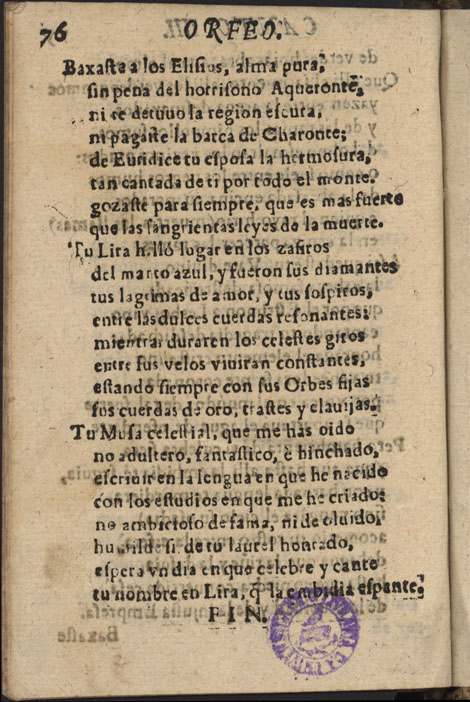 76 ORFEO.
Baxaste a los Elisios, alma pura,
sin pena del horrisono Aqueronte,
ni te detuuo la region escura,
ni pagaste la barca de Charonte;
de Euridice tu esposa la hermosura,
tan cantada de ti por todo el monte.
gozaste para siempre, que es mas fuerte
que las sangrientas leyes de la muerte.
Tu Lira halló lugar en los zafiros
del manto azul, y fueron sus diamantes
tus lagrimas de amor, y tus sospiros,
entre las dulces cuerdas resonantes:
mientras duraren los celestes giros
entre sus velos viuiran constantes,
estando siempre con sus Orbes fijas
sus cuerdas de oro, trastes y clauijas.
Tu Musa celestial, que me has oido
no adultero, fantastico, è hinchado,
escriuir en la lengua en que he nacido
con los estudios en que me he criado:
no ambicioso de fama, ni de oluido,
humilde si de tu laurel honrado,
espera vn dia en que celebre y cante
tu nombre en Lira, q̃ la embidia espante.
FIN.